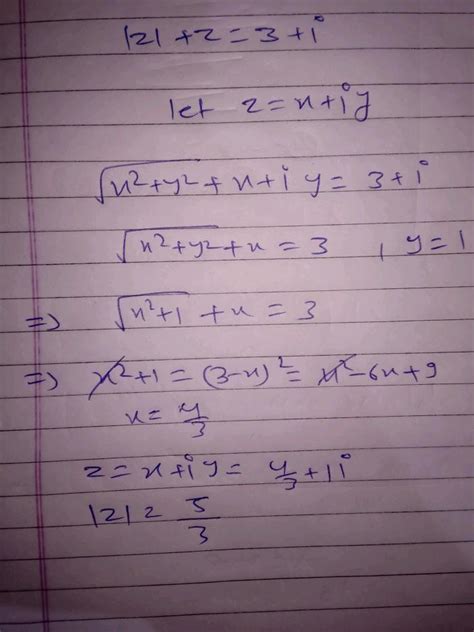 |z| + z = 3 + i
let z = x + iy
√x²+y² + x + i y = 3 + i
√x²+y² + x = 3 , y = 1
=> √x²+1 + x = 3
=> x² + 1 = (3-x)² = x² - 6x + 9
x = 4/3
z = x + iy = 4/3 + 1i
|z| = 5/3